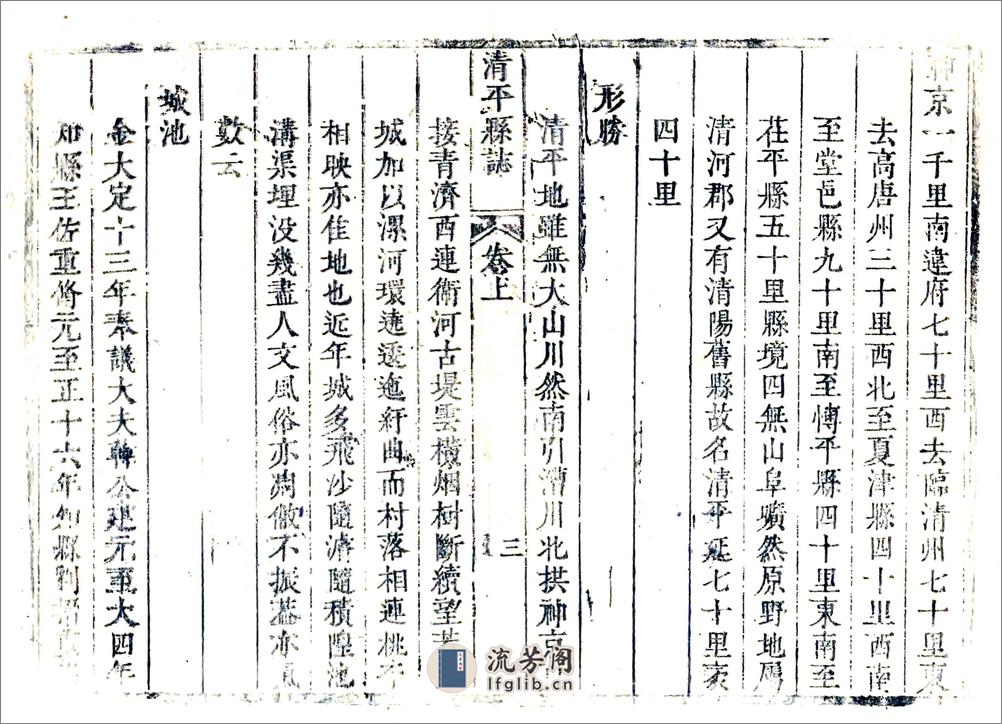 神京一千里南違府七十里西去臨清州七十里東
去高唐州三十里西北至夏津縣四十里西南
至堂邑縣九十里南至愽平縣四十里東南至
茌平縣五十里縣境四無山阜曠然原野地屬
清河郡又有清陽舊縣故名清平延七十里袤
四十里
形勝
清平地雖無大山川然南引漕川北拱神京
清平縣誌
卷上
三
接青濟西連衛河古堤雲橫烟树斷續望若
城加以漯河環遶逶迤紆曲而村落相連桃
相映亦佳地也近年城多飛沙隨濬隨積隍池
溝渠埋没幾盡人文風俗亦凋敝不振葢亦氣
數云
城池
金大定十三年奉議大夫韓公建元至大四年
知縣王佐重脩元至正十六年知縣劉
流芳阁
lfglib.cn